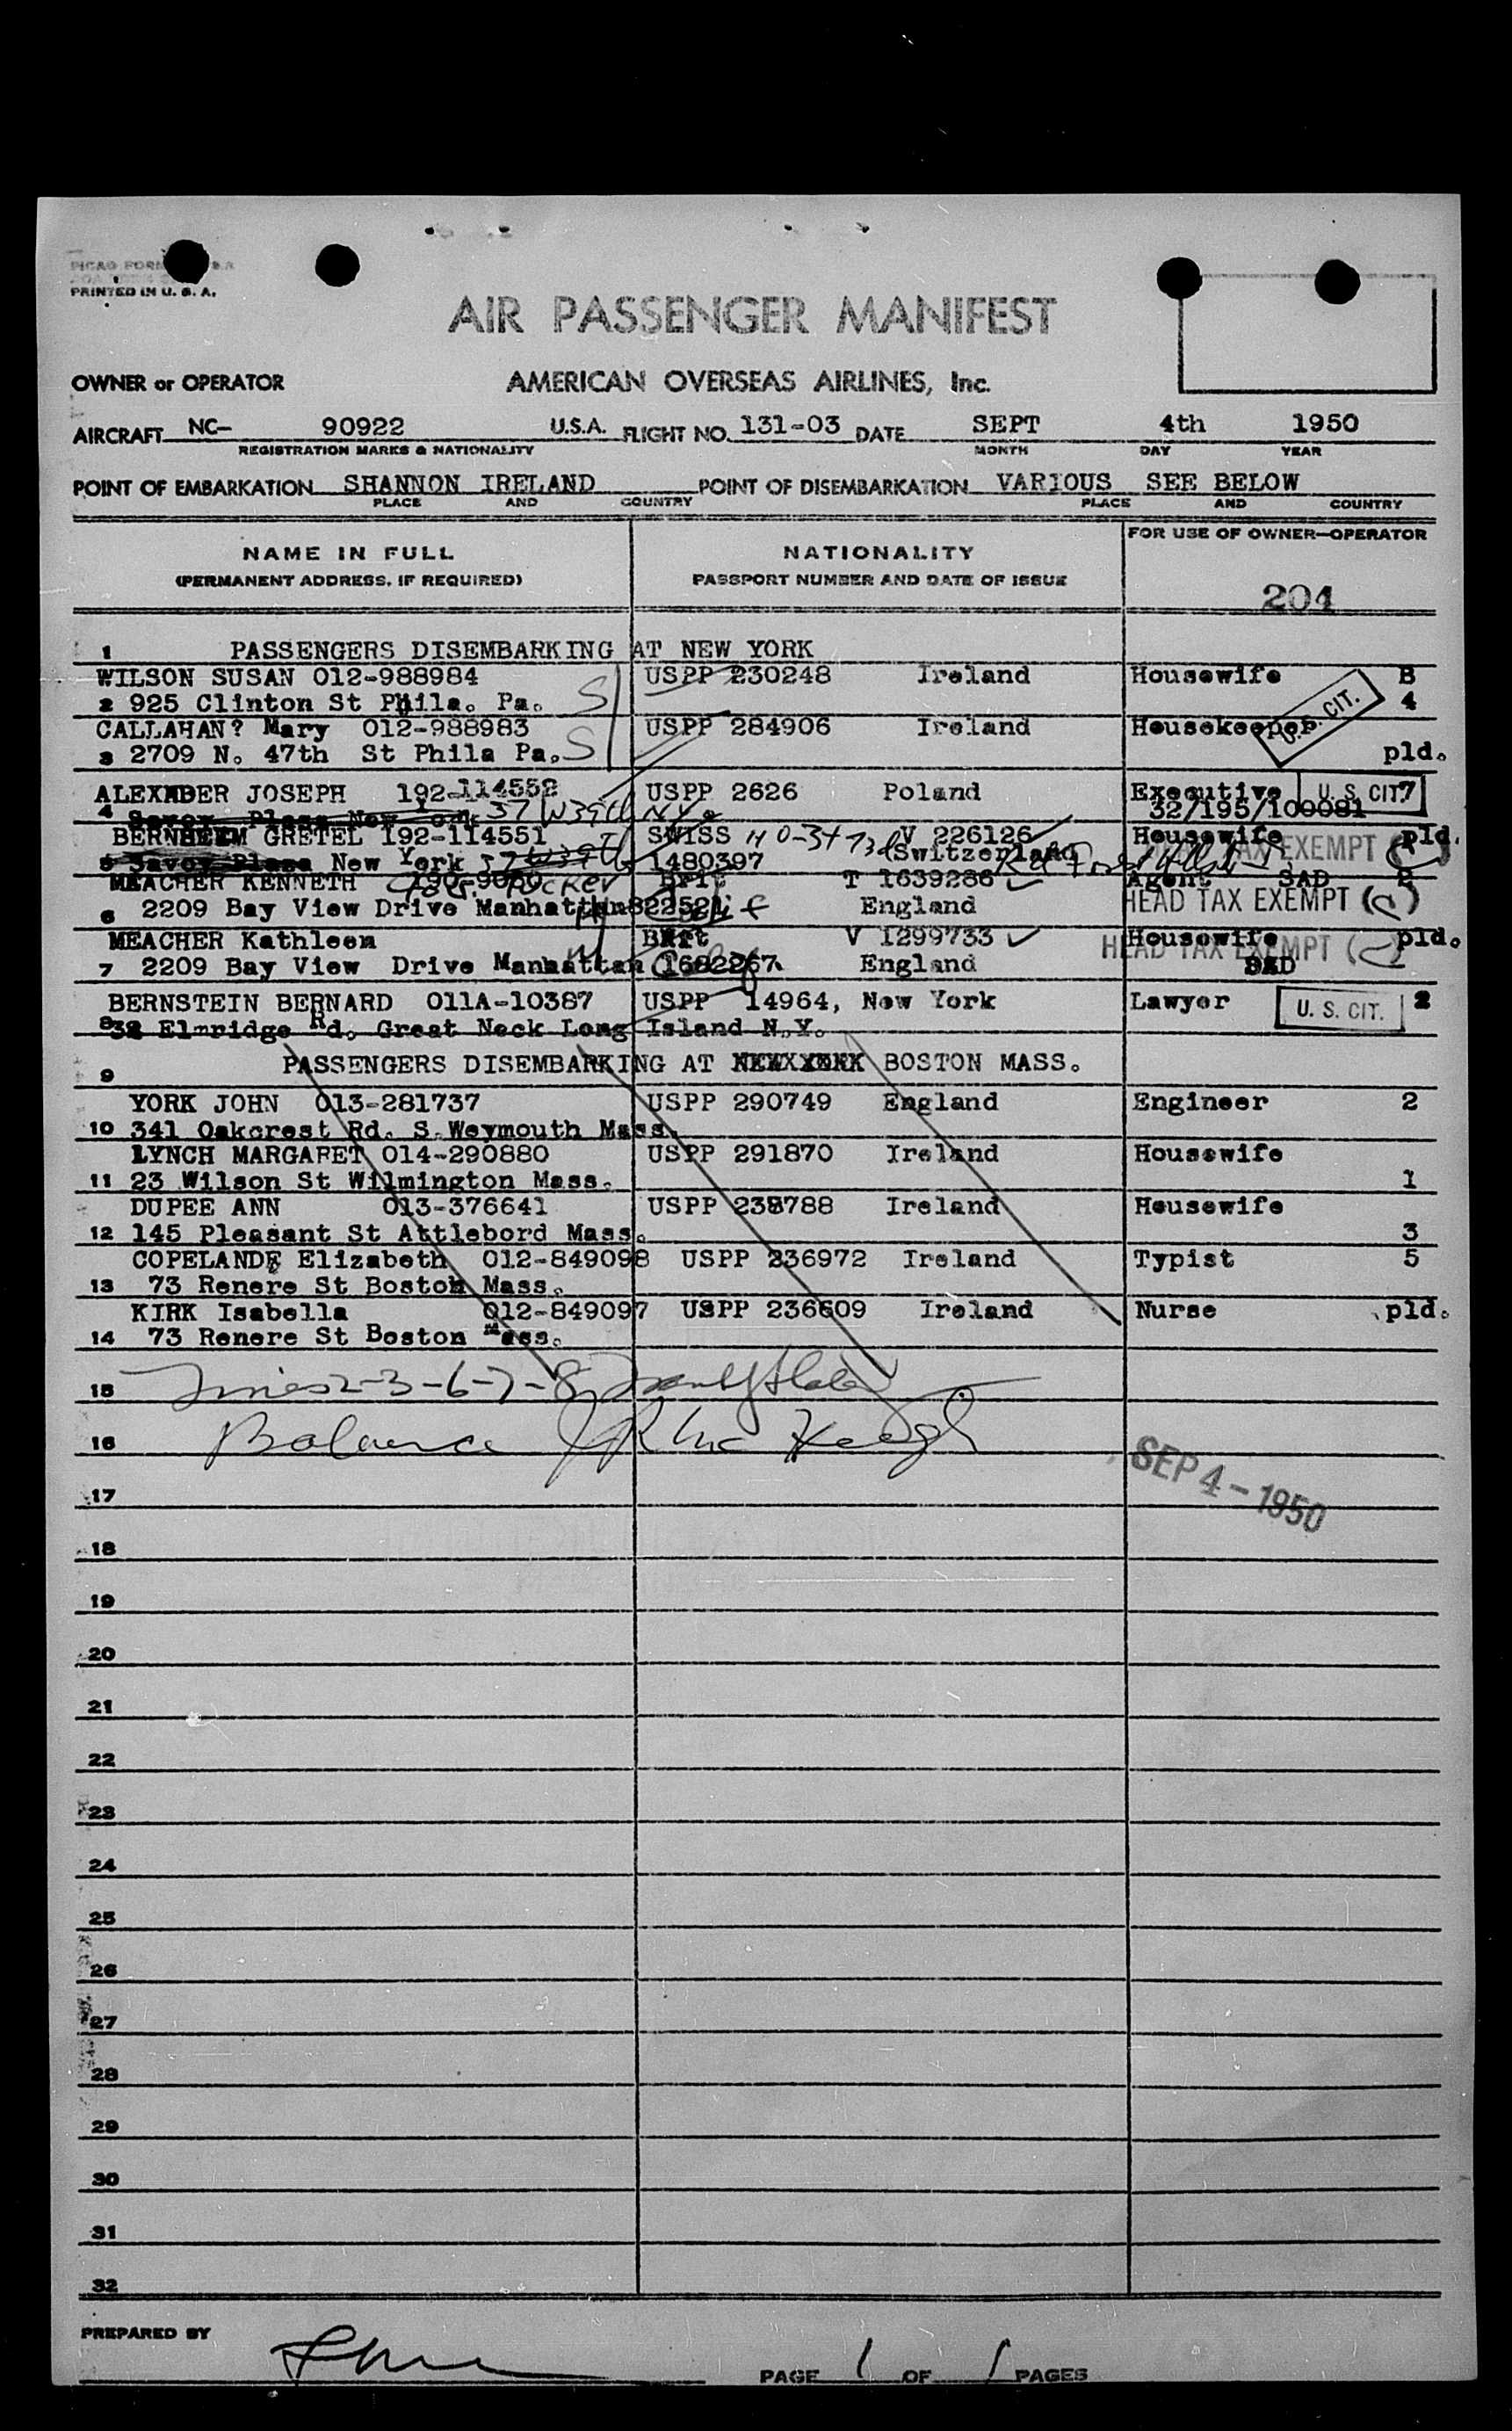 PRINTED IN U. S. A.
AIR PASSENGER MANIFEST
OWNER or OPERATOR AMERICAN OVERSEAS AIRLINES, Inc.
AIRCRAFT NC- 90922 U.S.A. FLIGHT NO. 131-03 DATE SEPT 4th 1950
REGISTRATION MARKS & NATIONALITY MONTH DAY YEAR
POINT OF EMBARKATION SHANNON IRELAND POINT OF DISEMBARKATION VARIOUS SEE BELOW
PLACE AND COUNTRY PLACE AND COUNTRY
NAME IN FULL NATIONALITY FOR USE OF OWNER-OPERATOR
(PERMANENT ADDRESS, IF REQUIRED) PASSPORT NUMBER AND DATE OF ISSUE
204
1 PASSENGERS DISEMBARKING AT NEW YORK
WILSON SUSAN 012-988984 USPP 230248 Ireland Housewife B
2 925 Clinton St Phila. Pa. S 4
CALLAHAN? Mary 012-988983 USPP 284906 Ireland Housekeeper U.S. CIT.
3 2709 N. 47th St Phila Pa. S pld.
ALEXANDER JOSEPH 192-114552 USPP 2626 Poland Executive U.S. CIT. 7
4 Savoy Plaza New York 37 W 39th N.Y. 32/195/100081
GRETEL 192-114551 SWISS V 226126 Housewife pld.
5 Savoy Plaza New York 37 W 39th 1480397 (Switzerland) HEAD TAX EXEMPT
MEACHER KENNETH Brit T 1639286 Agent SAD 2
6 2209 Bay View Drive Manhattan 822521 England HEAD TAX EXEMPT
MEACHER Kathleen Brit V 1299733 Housewife pld.
7 2209 Bay View Drive Manhattan Calif. 1682267 England HEAD TAX EXEMPT SAD
BERNSTEIN BERNARD 011A-10387 USPP 14964, New York Lawyer U. S. CIT. 2
8 32 Elmridge Rd. Great Neck Long Island N.Y.
9 PASSENGERS DISEMBARKING AT BOSTON MASS.
YORK JOHN 013-281737 USPP 290749 England Engineer 2
10 341 Oakcrest Rd. S.Weymouth Mass.
LYNCH MARGARET 014-290880 USPP 291870 Ireland Housewife
11 23 Wilson St Wilmington Mass. 1
DUPEE ANN 013-376641 USPP 238788 Ireland Housewife
12 145 Pleasant St Attlebord Mass. 3
COPELANDE Elizabeth 012-849098 USPP 236972 Ireland Typist 5
13 73 Renere St Boston Mass.
KIRK Isabella 012-849097 USPP 236609 Ireland Nurse pld.
14 73 Renere St Boston Mass.
15 Lines 2-3-6-7-8
16 Balance
SEP 4 - 1950
17
18
19
20
21
22
23
24
25
26
27
28
29
30
31
32
PREPARED BY
PAGE 1 OF 1 PAGES